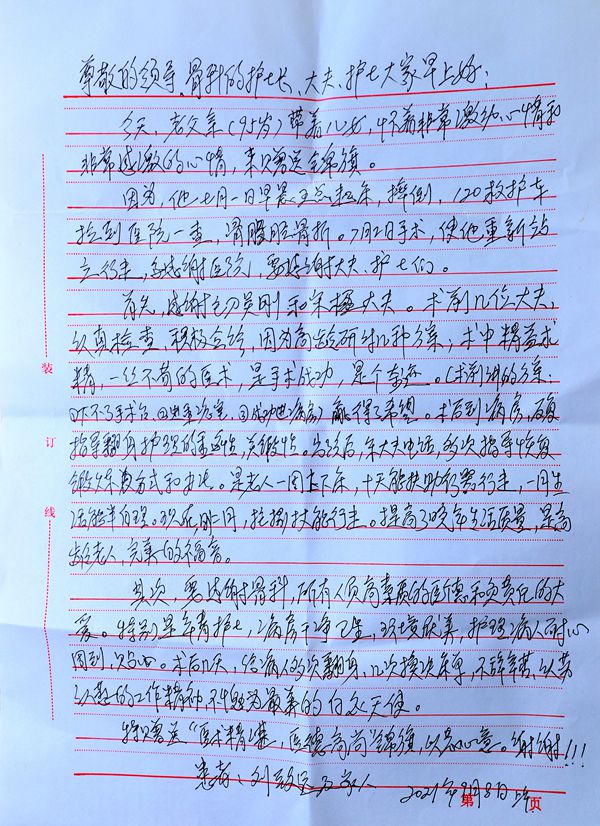 尊敬的领导、骨科的护士长、大夫、护士大家早上好：
今天,老父亲(95岁)带着儿女,怀着非常激动心情和
非常感激的心情,来赠送锦旗。
因为,他七月一日早晨起床,摔倒,120救护车
拉到医院一查,骨股胫骨折。7月2日手术,使他重新站
立行走,感谢医院,要感谢大夫、护士们。
首先,感谢主刀吴刚和宋极大夫。术前几位大夫,
认真检查,积极会诊,因为高龄研究几种方案;术中精益求
精,一丝不苟的医术,是手术成功,是个奇迹。(术前别的方案:
下不了手术台,赢得了希望。术后到病房,反复
指导翻身护理的重要性,关键性。出院后,宋大夫电话,多次指导恢复
锻炼方式和办法。是老人一周上下床,十天能扶助行器行走,一月生
活能半自理。现在,两月,拄拐杖能行走。提高了晚年生活质量,是高
龄老人,完美的福音。
其次,要感谢骨科,所有人员高素质的医德和负责任的大
爱。特别是年青护士,病房干净卫生,环境优美,护理病人耐心
周到,术后几天,给病人多次翻身,几次换床单,不辞辛苦,认真
的工作精神,不愧为最美的白衣天使。
特赠送“医术精湛,医德高尚”锦旗,以表心意。谢谢!!!
患者:刘 及家人
2021年9月8日
第 页
装
订
线